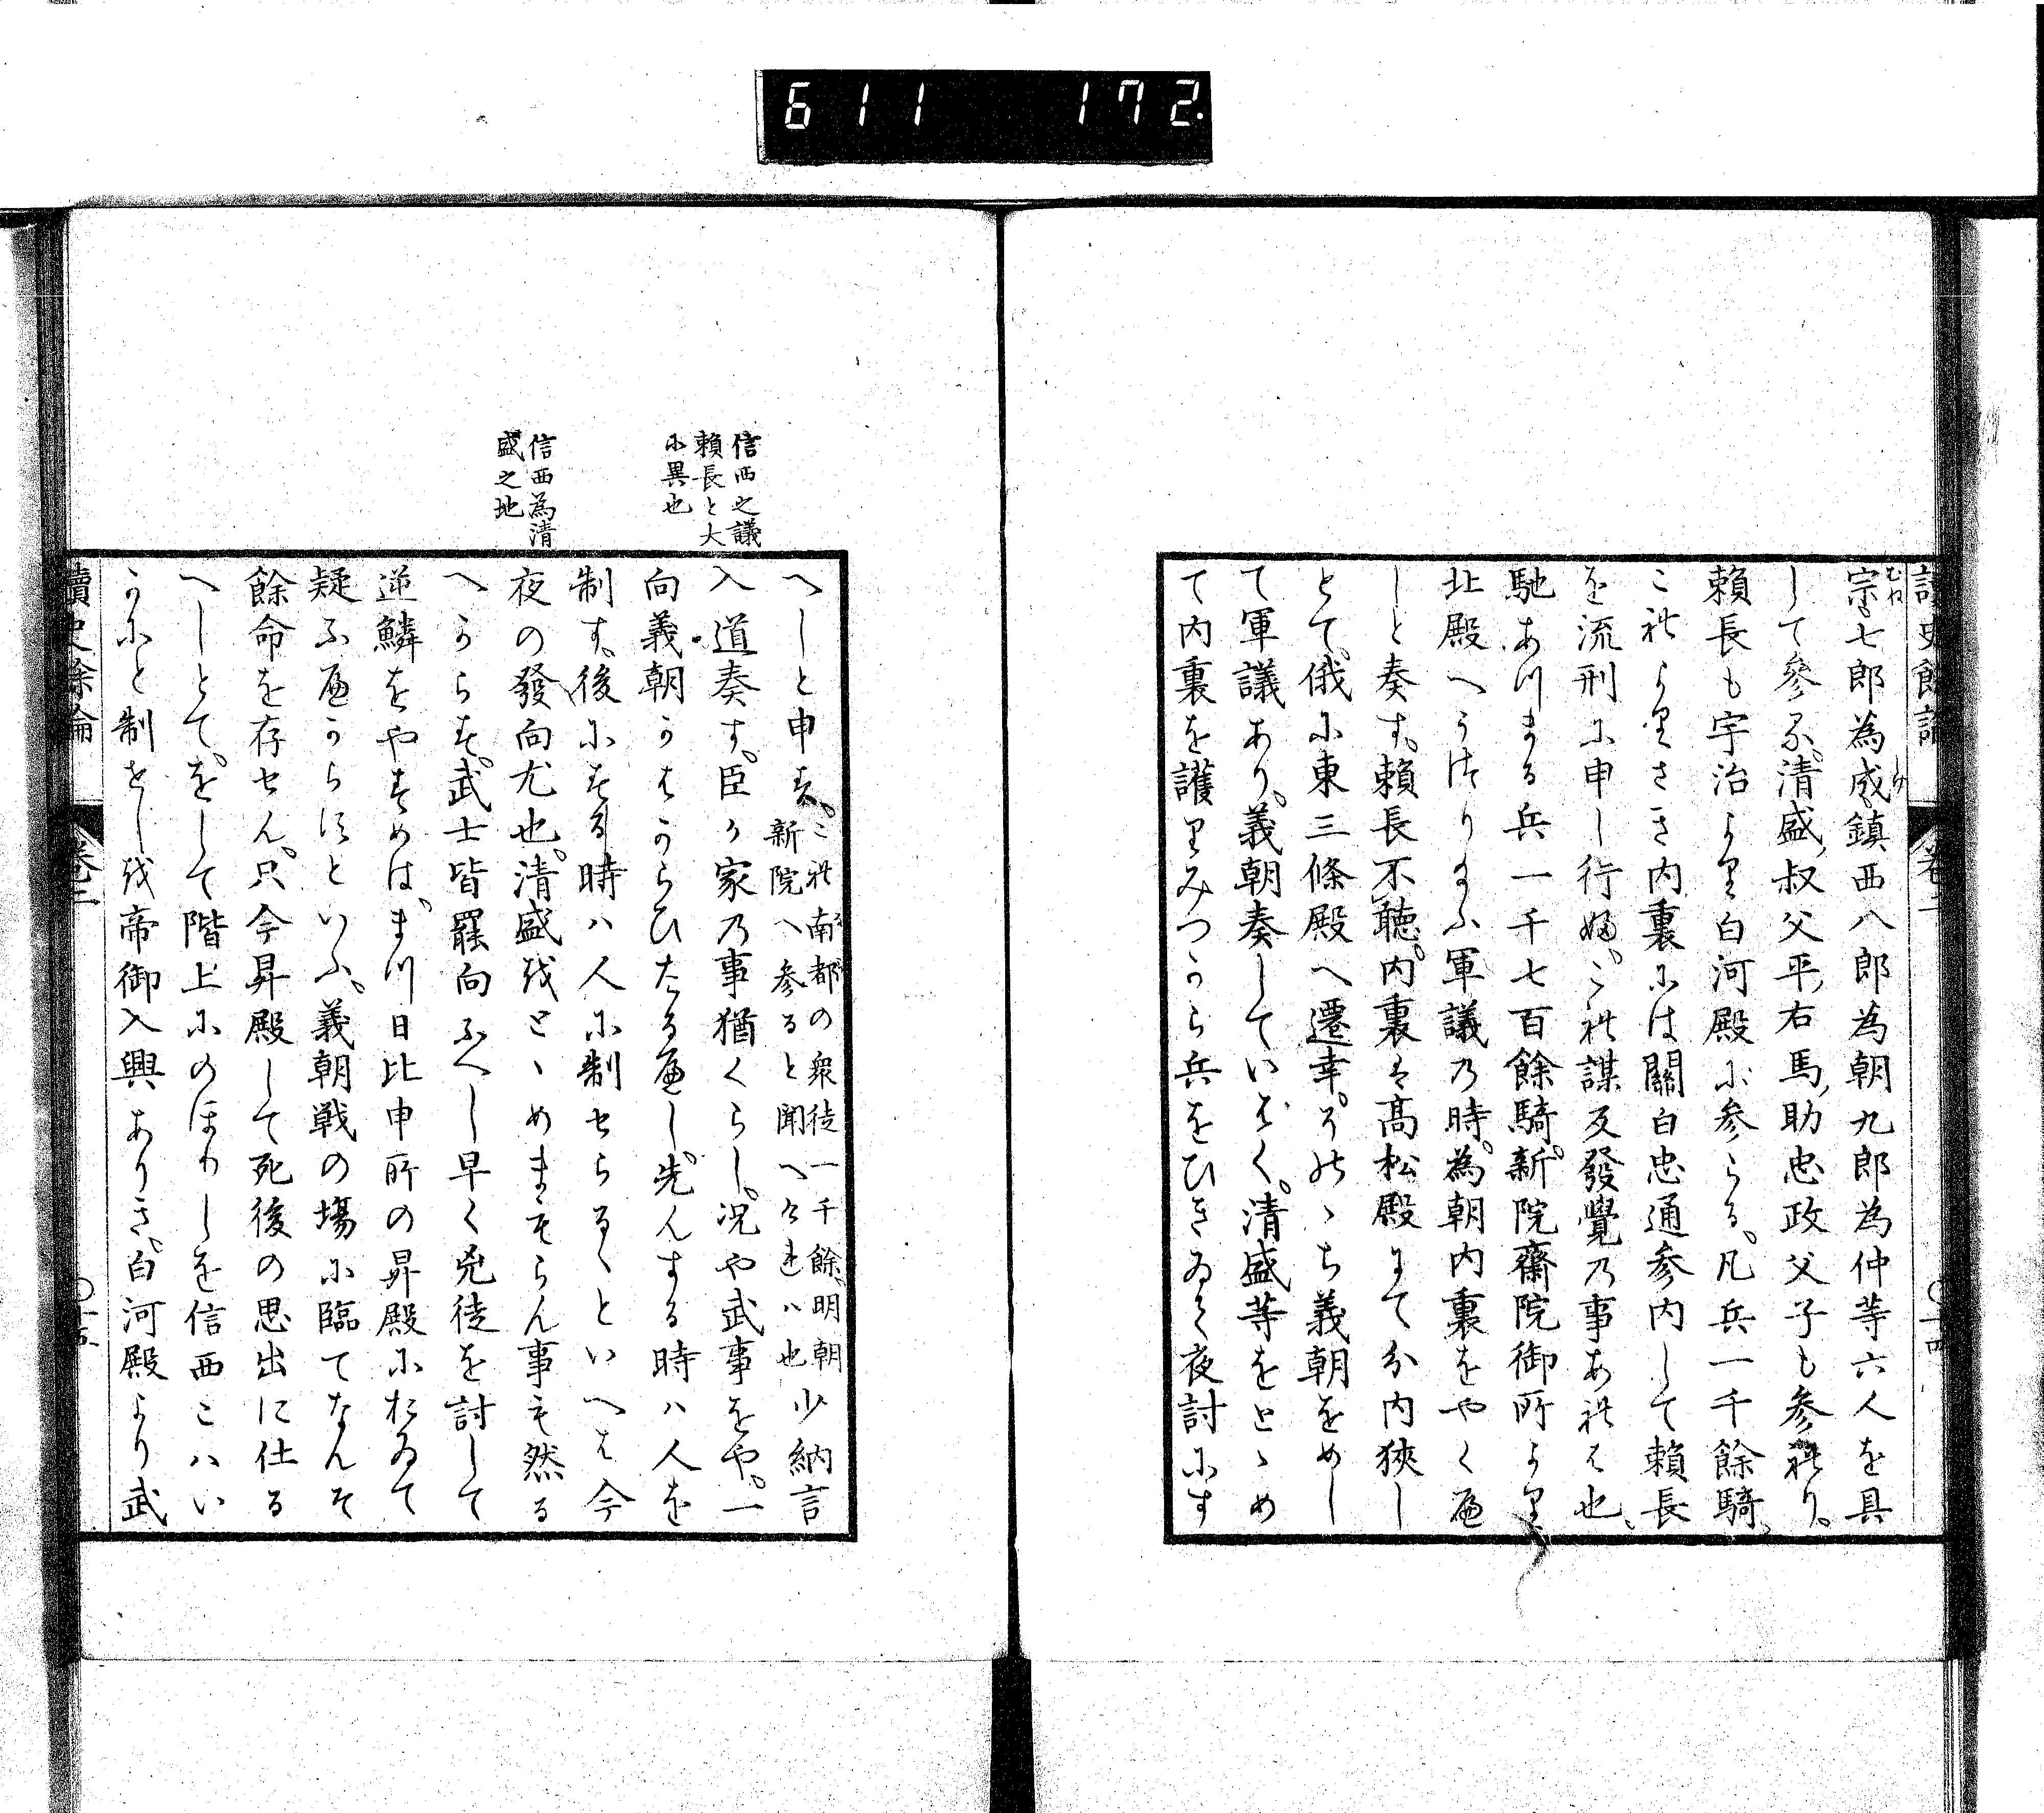 611 172.
讀史餘論 卷二 〇十四
宗七郎為成鎮西八郎為朝九郎為仲等六人を具
して參る。清盛叔父平右馬助忠政父子も参れり。
頼長も宇治より白河殿に参らる。凡兵一千餘騎。
これよりさき内裏には關白忠通参内して頼長
を流刑に申し行ふ。これ謀反發覺の事あれは也。
馳あつまる兵一千七百餘騎。新院齋院御所より
北殿へうつり給ふ軍議の時。為朝内裏をやくへ
しと奏す。頼長不聴。内裏は高松殿にて分内狹し
とて。俄に東三條殿へ遷幸。そのゝち義朝をめし
て軍議あり。義朝奏していはく。清盛等をとゝめ
て内裏を護りみつから兵をひきゐて夜討にす
へしと申す。
これ南都の衆徒一千餘明朝
新院へ参ると聞へけれハ也
少納言
入道奏す。臣か家の事猶くらし。況や武事をや。一
向義朝かはからひたるへし。先んする時ハ人を
制す。後にする時ハ人に制せらるゝといへは今
夜の發向尤也。清盛をとゝめまいらん事も然る
へからす。武士皆罷向ふへし早く兇徒を討して
逆鱗をやすめは。まつ日比申所の昇殿におゐて
疑ふへからすといふ。義朝戦の場に臨てなんそ
餘命を存せん。只今昇殿して死後の思出に仕る
へしとて。をして階上にのほりしを信西こハい
かにと制せしを帝御入興ありき。白河殿より武
信西之議
頼長と大
に異也
信西為清
盛之地
讀史餘論 卷二 〇十五